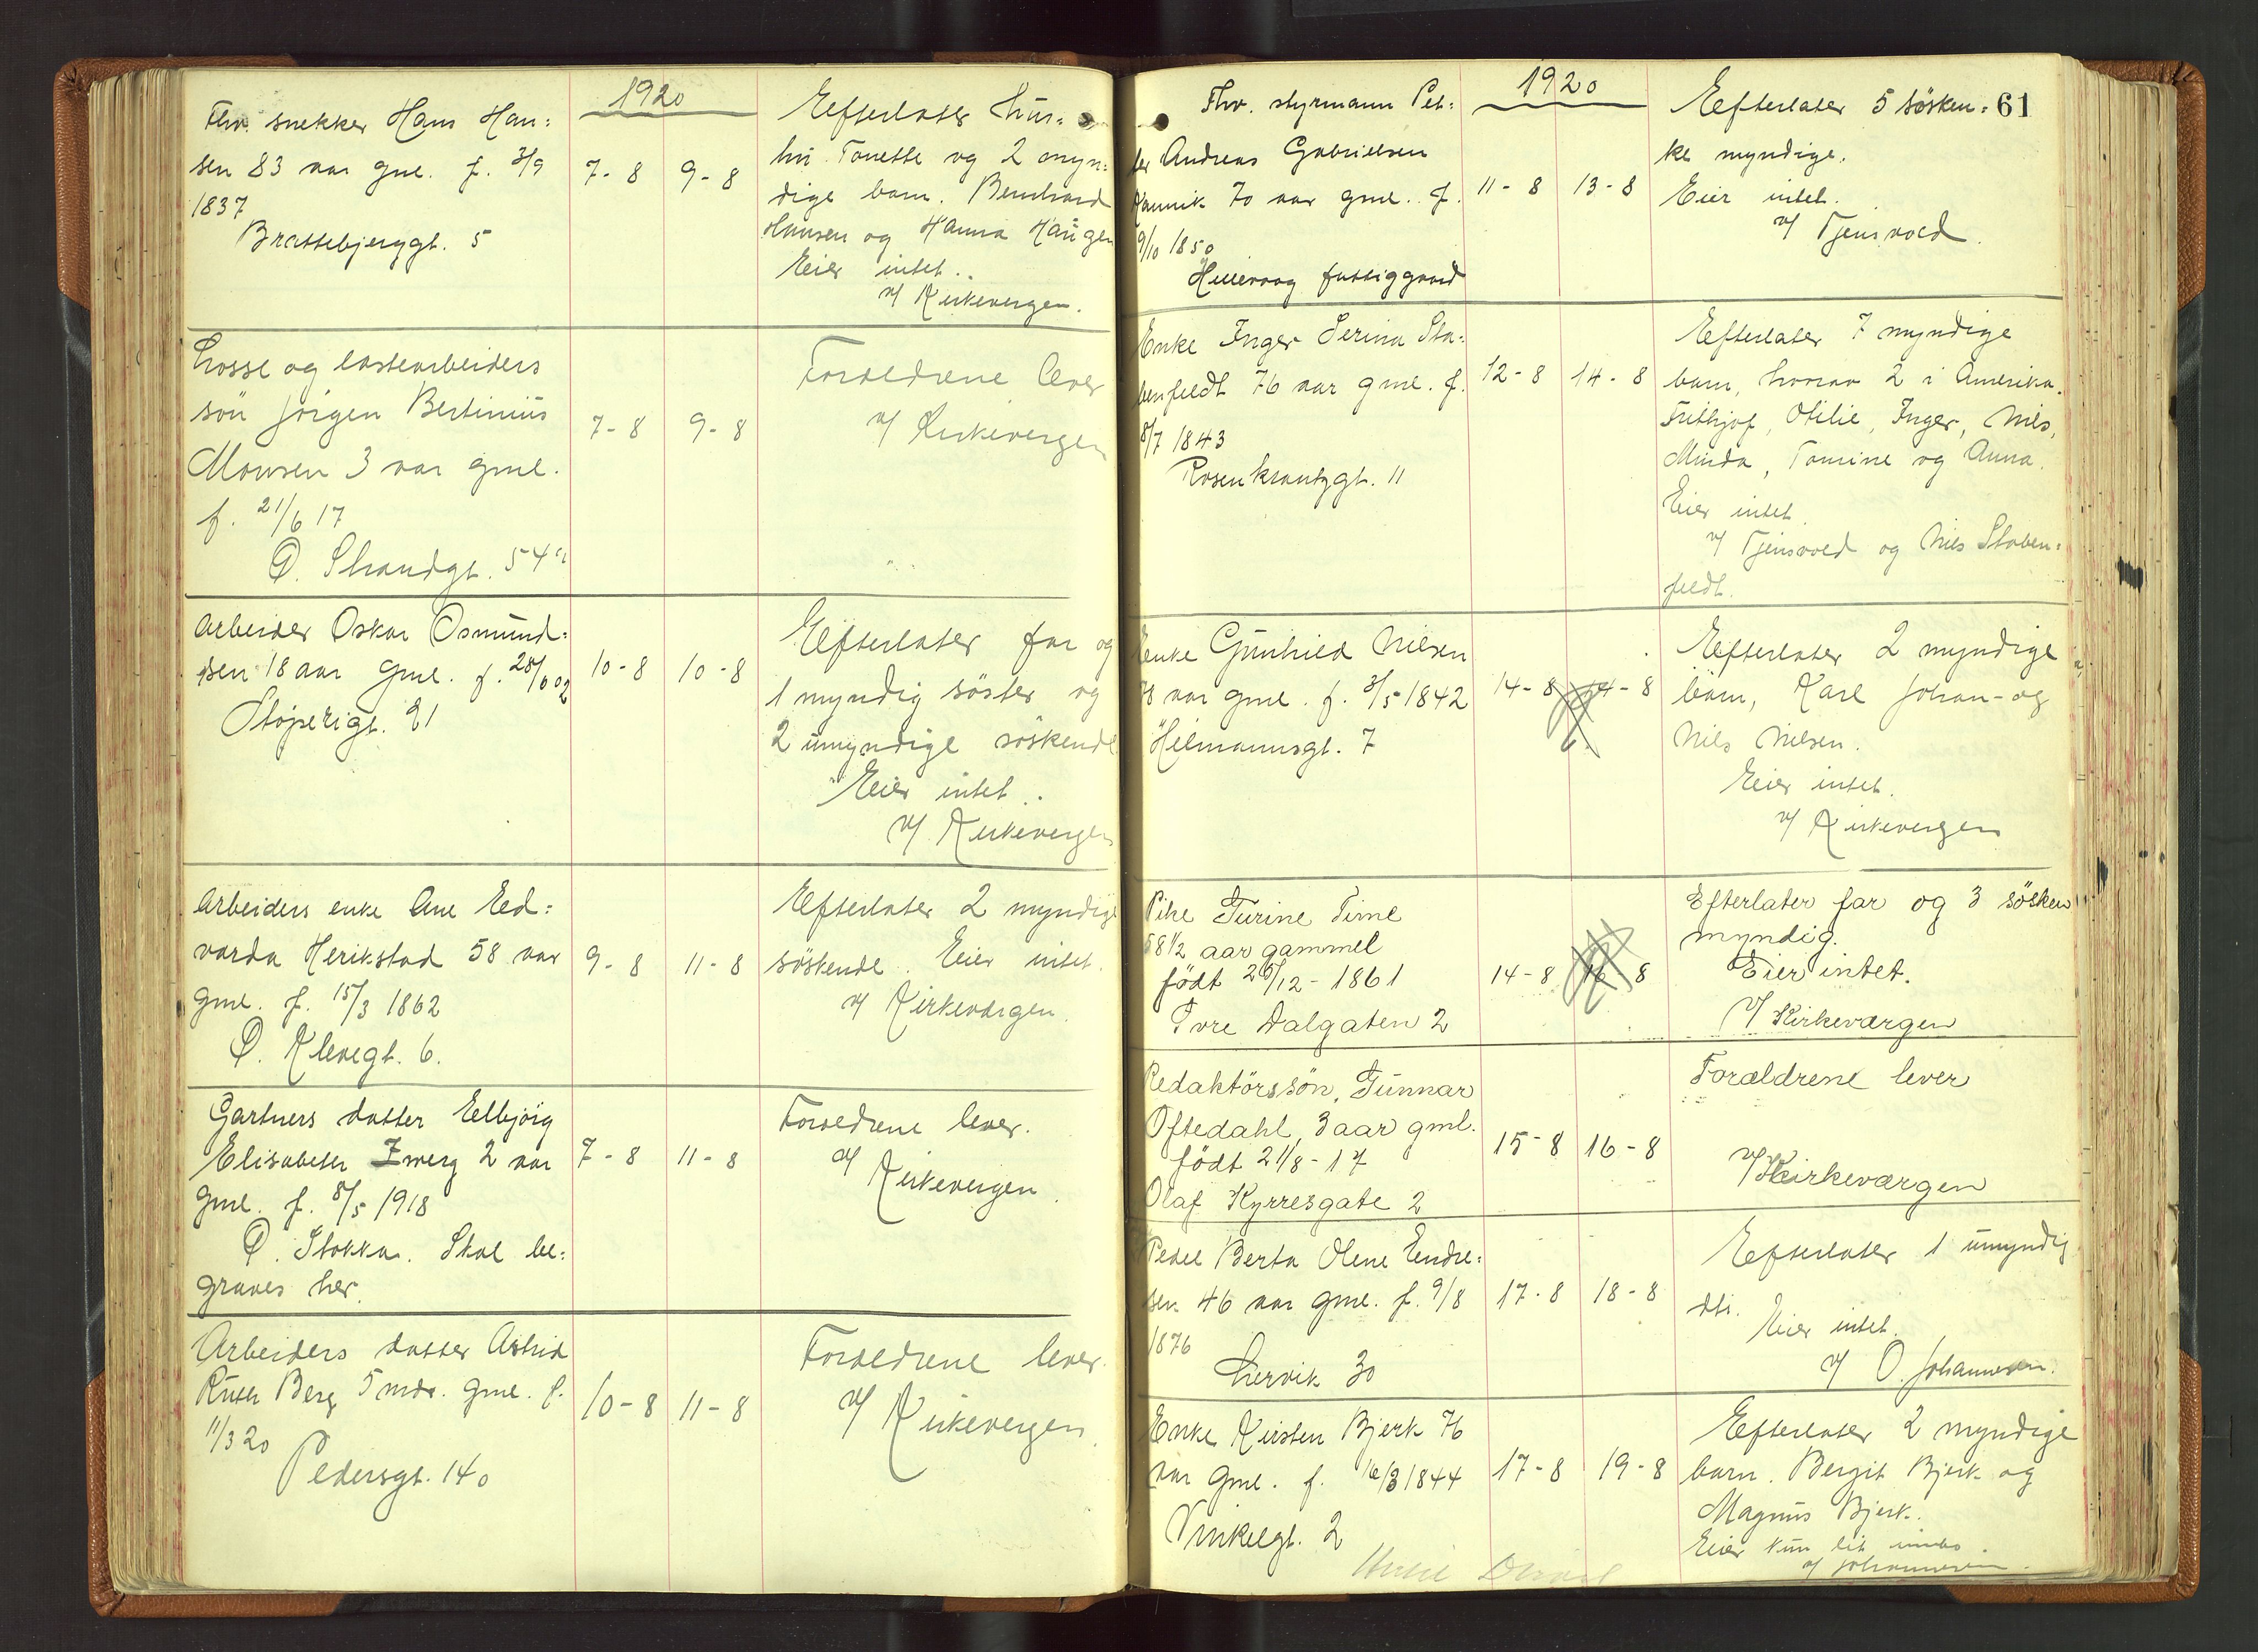 1920
Fhv. snekker Hans Han=
sen 83 aar gml. f. 3/9
1837
Brattebjerggt. 5
7-8
9-8
Efterlater hus=
tru Tonette og 2 myn=
dige barn. Bernhard
Hansen og Hanna Haugen
Eier intet.
v/ Kirkevergen.
Losse og lastearbeiders
søn Jörgen Bertinius
Monsen 3 aar gml.
f. 21/6 17
Ø. Strandgt. 54a
7-8
9-8
Foreldrene lever
v/ Kirkevergen
Arbeider Oskar Osmund=
sen 18 aar gml. f. 28/6 02
Støperigt. 21
10-8
10-8
Efterlater far og
1 myndig söster og
2 umyndige söskende
Eier intet.
v/ Kirkevergen
Arbeiders enke Ane Ed=
varda Herikstad 58 aar
gml. f. 15/3 1862
Ø. Klevegt. 6.
9-8
11-8
Efterlater 2 myndige
söskende. Eier intet.
v/ Kirkevergen.
Gartners datter Elbjörg
Elisabeth Zwerg 2 aar
gml. f. 8/5 1918
Ø. Stokka. Skal be=
graves her.
7-8
11-8
Foreldrene lever.
v/ Kirkevergen.
Arbeiders datter Astrid
Ruth Berg 5 mdr. gml. f.
11/3 20
Pedersgt. 140
10-8
11-8
Foreldrene lever.
v/ Kirkevergen.
1920
61
Fhv. styrmann Pet=
ter Andreas Gabrielsen
Kannik 70 aar gml. f.
9/10 1850
Hillevaag fattiggaard
11-8
13-8
Efterlater 5 sösken=
ke myndige.
Eier intet.
v/ Tjensvold.
Enke Inger Serina Sta=
benfeldt 76 aar gml. f.
8/7 1843
Rosenkrantzgt. 11
12-8
14-8
Efterlater 7 myndige
barn, hvorav 2 i Amerika.
Frithjof, Otilie, Inger, Nils,
Minda, Tomine og Anna.
Eier intet.
v/ Tjensvold og Nils Staben=
feldt.
Enke Gunhild Nilsen
78 aar gml. f. 3/5 1842
Helmannsgt. 7
14-8
14-8
Efterlater 2 myndige
barn, Karl Johan og
Nils Nilsen.
Eier intet.
v/ Kirkevergen
Pike Turine Time
58 1/2 aar gammel
födt 26/12 - 1861
Øvre Dalgaten 2
14-8
16-8
Efterlater far og 3 sösken
myndig.
Eier intet.
v/ Kirkevægen
Redaktörssön, Gunnar
Oftedahl, 3 aar gml.
födt 21/8 - 17
Olaf Kyrresgate 2
15-8
16-8
Forældrene lever
v/ Kirkeværgen
Pedel Berta Olene Endre=
sen 46 aar gml. f. 9/8
1876
Lervik 30
17-8
18-8
Efterlater 1 umyndig
dtr. Eier intet.
v/ O. Johannesen.
Enke Kirsten Bjerk 76
aar gml. f. 16/3 1844
Vinkelgt. 2
17-8
19-8
Efterlater 2 myndige
barn. Bergit Bjerk og
Magnus Bjerk.
Eier kun lit indbo.
v/ Johannesen.